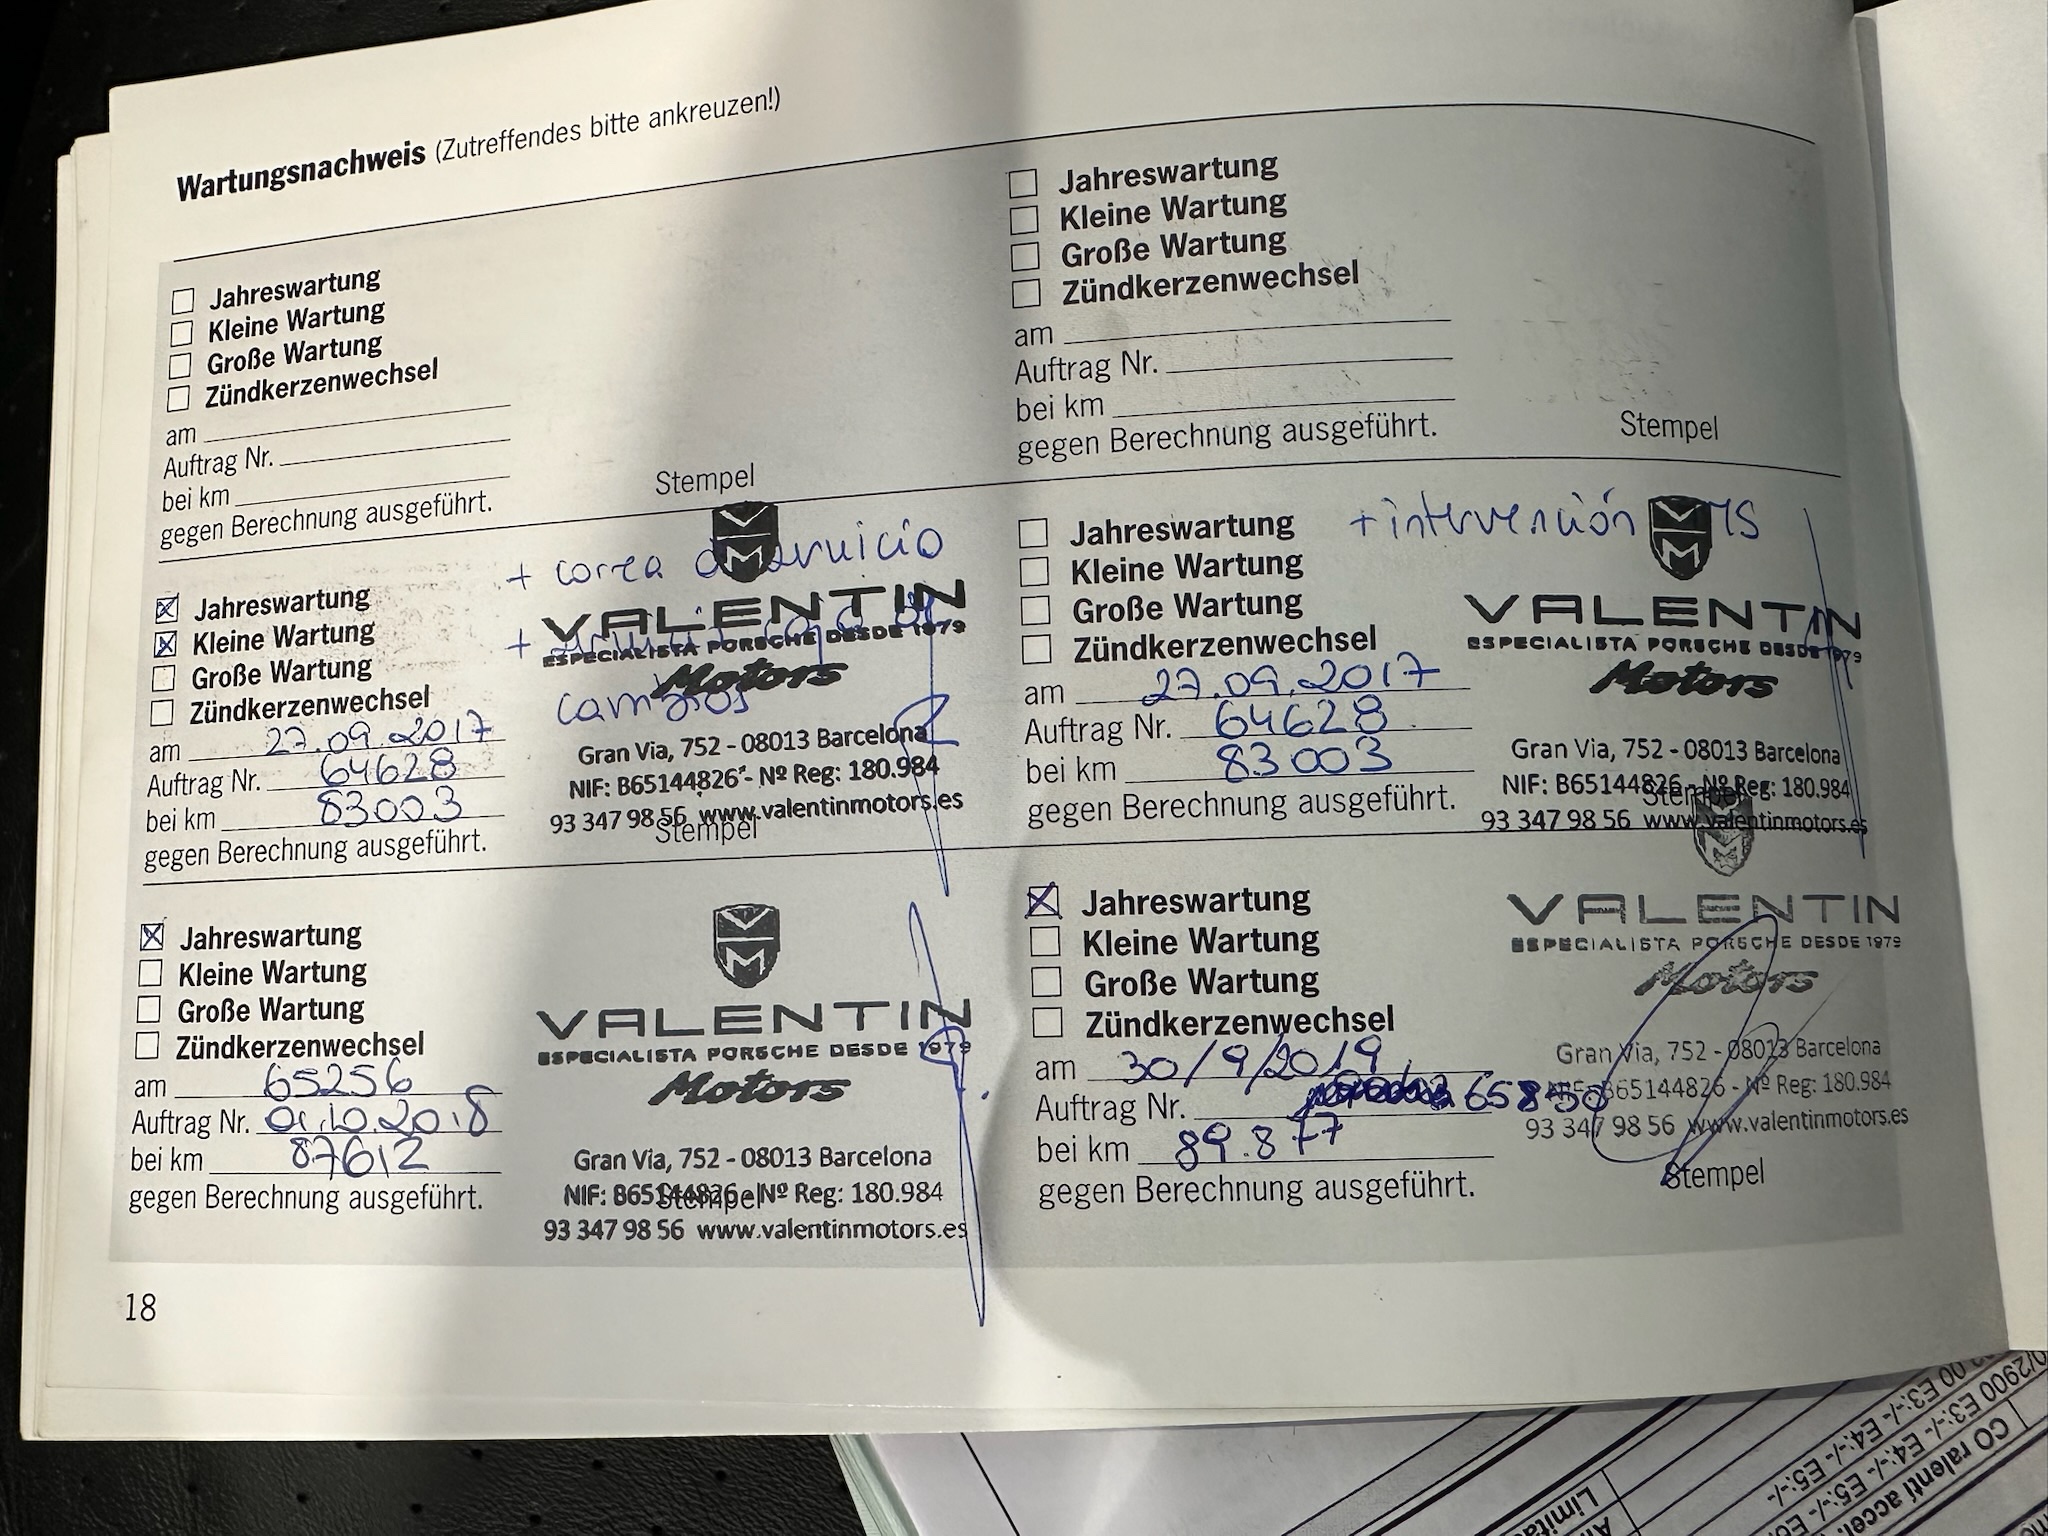 Wartungsnachweis (Zutreffendes bitte ankreuzen!)
Jahreswartung
Kleine Wartung
Große Wartung
Zündkerzenwechsel
am
Auftrag Nr.
bei km
gegen Berechnung ausgeführt.
Stempel
Jahreswartung
Kleine Wartung
Große Wartung
Zündkerzenwechsel
am
Auftrag Nr.
bei km
gegen Berechnung ausgeführt.
Stempel
Jahreswartung
Kleine Wartung
Große Wartung
Zündkerzenwechsel
am 27.09.2017
Auftrag Nr. 64628
bei km 83003
gegen Berechnung ausgeführt.
+ correa
+
cambios
VM
VALENTIN
ESPECIALISTA PORSCHE DESDE 1979
Motors
Gran Via, 752 - 08013 Barcelona
NIF: B65144826 - Nº Reg: 180.984
93 347 98 56 www.valentinmotors.es
Stempel
Jahreswartung
Kleine Wartung
Große Wartung
Zündkerzenwechsel
am 27.09.2017
Auftrag Nr. 64628
bei km 83003
gegen Berechnung ausgeführt.
+ intervención
VM
VALENTIN
ESPECIALISTA PORSCHE DESDE 1979
Motors
Gran Via, 752 - 08013 Barcelona
NIF: B65144826 - Nº Reg: 180.984
Stempel
93 347 98 56 www.valentinmotors.es
Jahreswartung
Kleine Wartung
Große Wartung
Zündkerzenwechsel
am 65256
Auftrag Nr. 01.10.2018
bei km 87612
gegen Berechnung ausgeführt.
VM
VALENTIN
ESPECIALISTA PORSCHE DESDE 1979
Motors
Gran Via, 752 - 08013 Barcelona
NIF: B65144826 - Nº Reg: 180.984
Stempel
93 347 98 56 www.valentinmotors.es
Jahreswartung
Kleine Wartung
Große Wartung
Zündkerzenwechsel
am 30/9/2019
Auftrag Nr. 65850
bei km 89.877
gegen Berechnung ausgeführt.
VM
VALENTIN
ESPECIALISTA PORSCHE DESDE 1979
Motors
Gran Via, 752 - 08013 Barcelona
NIF: B65144826 - Nº Reg: 180.984
93 347 98 56 www.valentinmotors.es
Stempel
18
CO ralenti